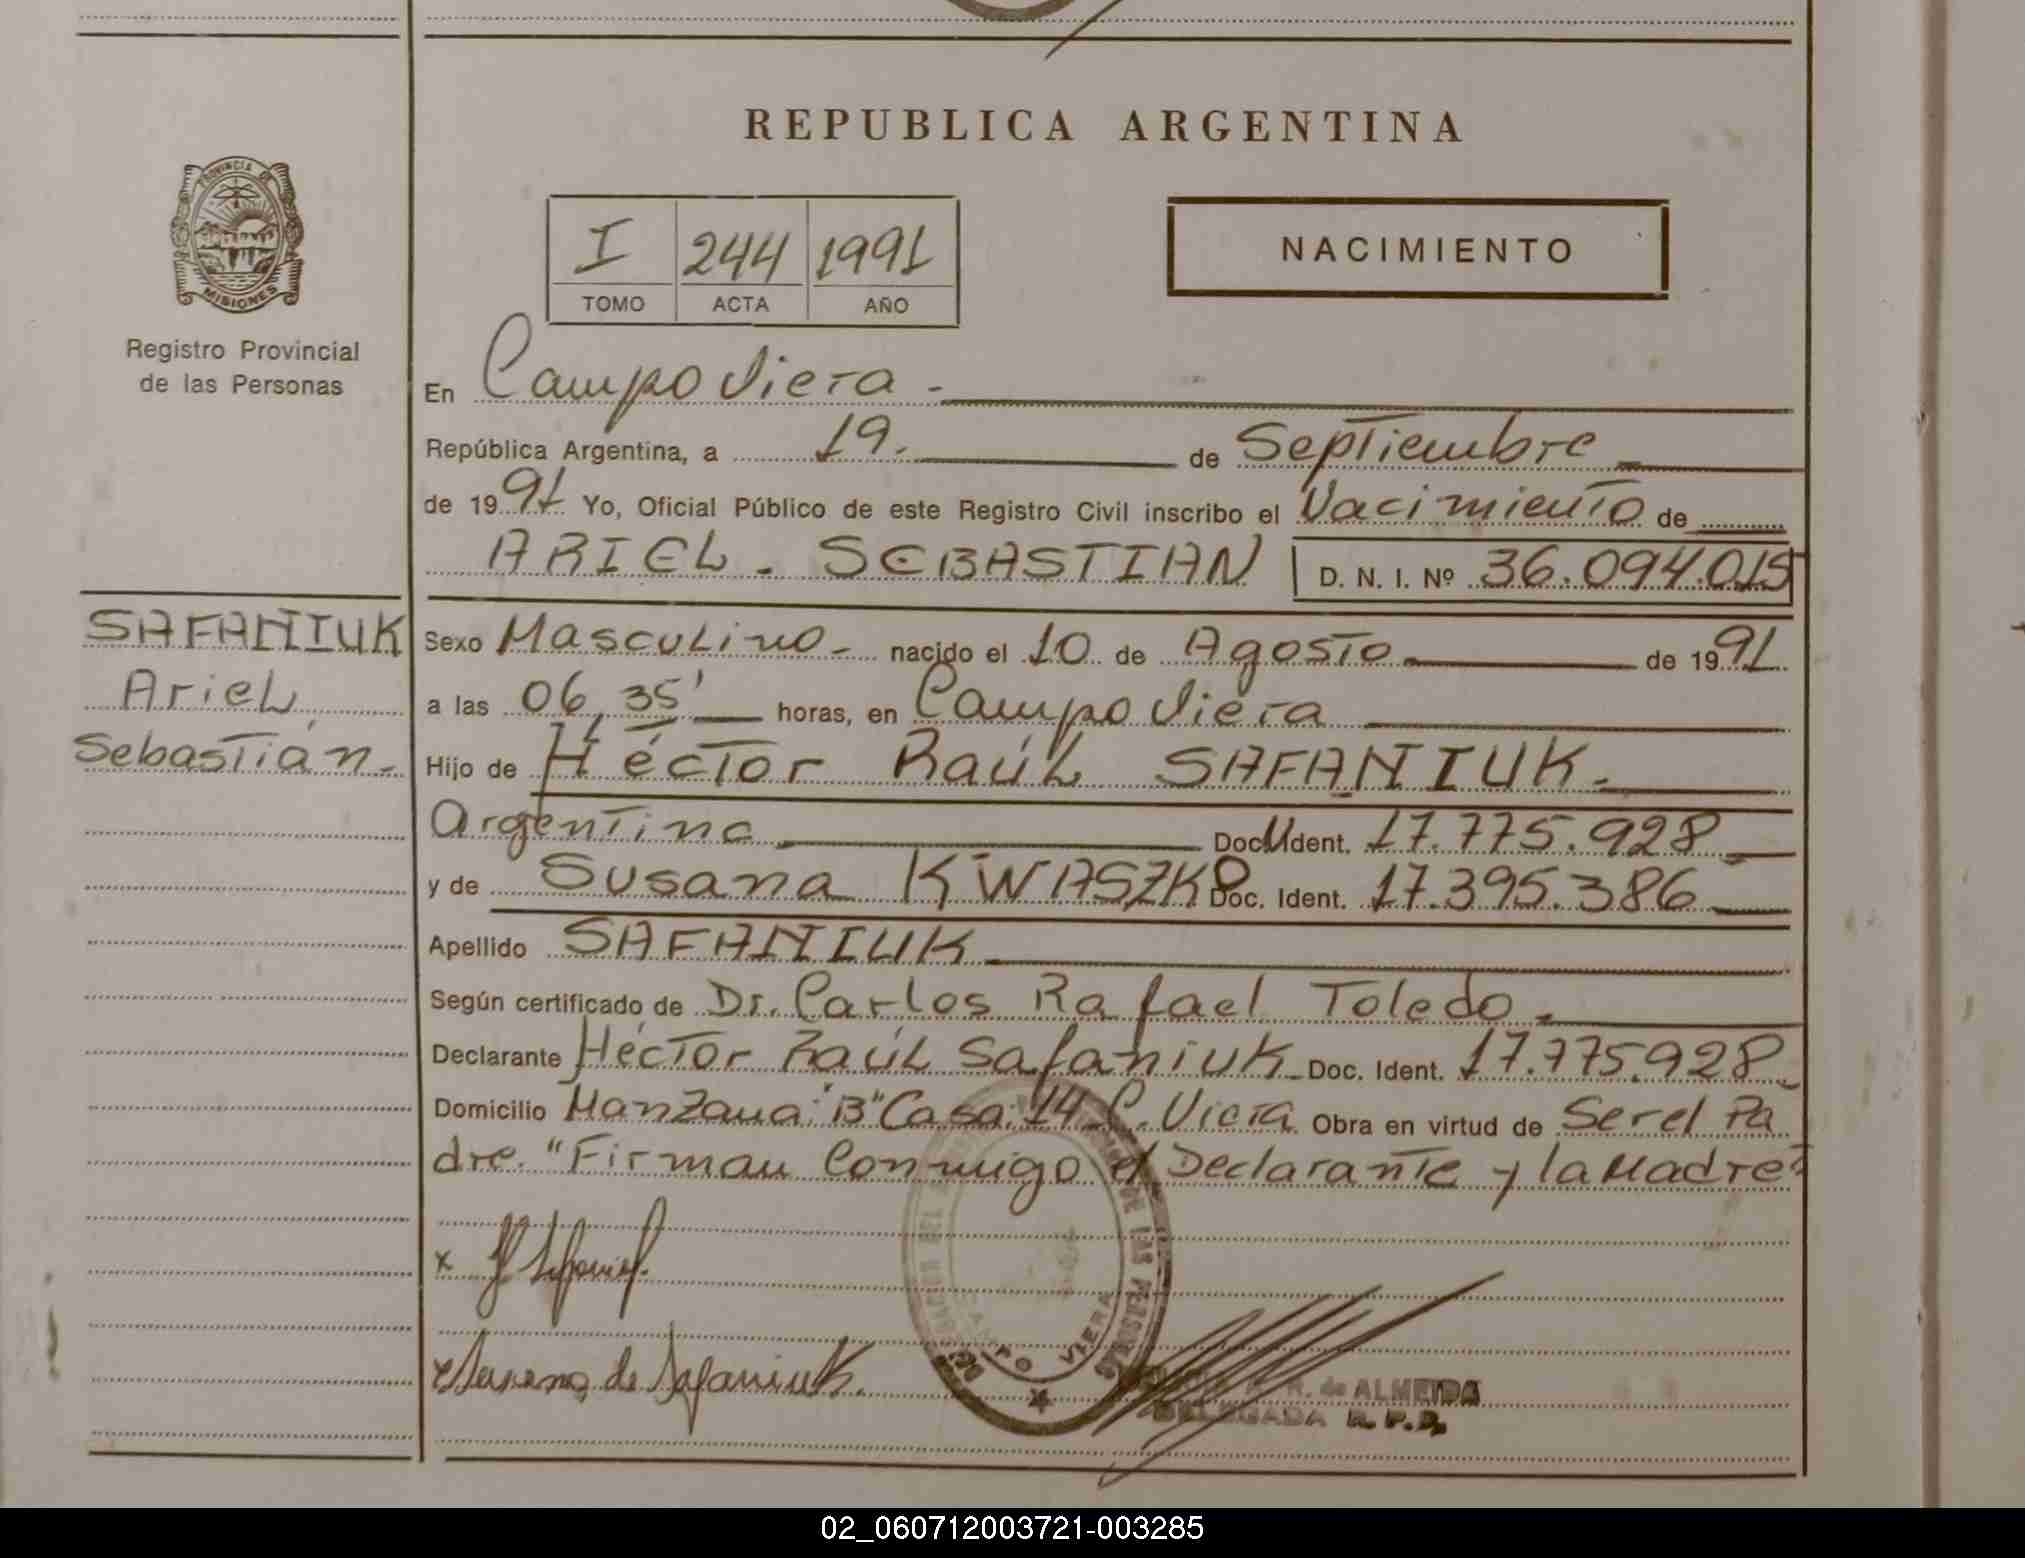 REPUBLICA ARGENTINA
PROVINCIA DE
MISIONES
Registro Provincial
de las Personas
I 244 1991
TOMO ACTA AÑO
NACIMIENTO
En Campo Viera -
República Argentina, a 19. de Septiembre
de 1991 Yo, Oficial Público de este Registro Civil inscribo el Nacimiento de
ARIEL - SEBASTIAN D. N. I. Nº 36.094.015
SAFANIUK
Ariel,
Sebastián.-
Sexo Masculino - nacido el 10 de Agosto de 1991
a las 06,35' horas, en Campo Viera
Hijo de Héctor Raúl SAFANIUK.-
Argentina Doc. Ident. 17.775.928
y de Susana KWASZKO Doc. Ident. 17.395.386
Apellido SAFANIUK
Según certificado de Dr. Carlos Rafael Toledo -
Declarante Héctor Raúl Safaniuk - Doc. Ident. 17.775.928
Domicilio Manzana: "B" Casa: 14 C. Viera Obra en virtud de Ser el Pa
dre. "Firman Conmigo el Declarante y la Madre"
x H Safaniuk
x Susana de Safaniuk.
DE LAS PERSONAS
CAMPO VIERA
R. de ALMEIDA
DELEGADA R. P. P.
02_060712003721-003285